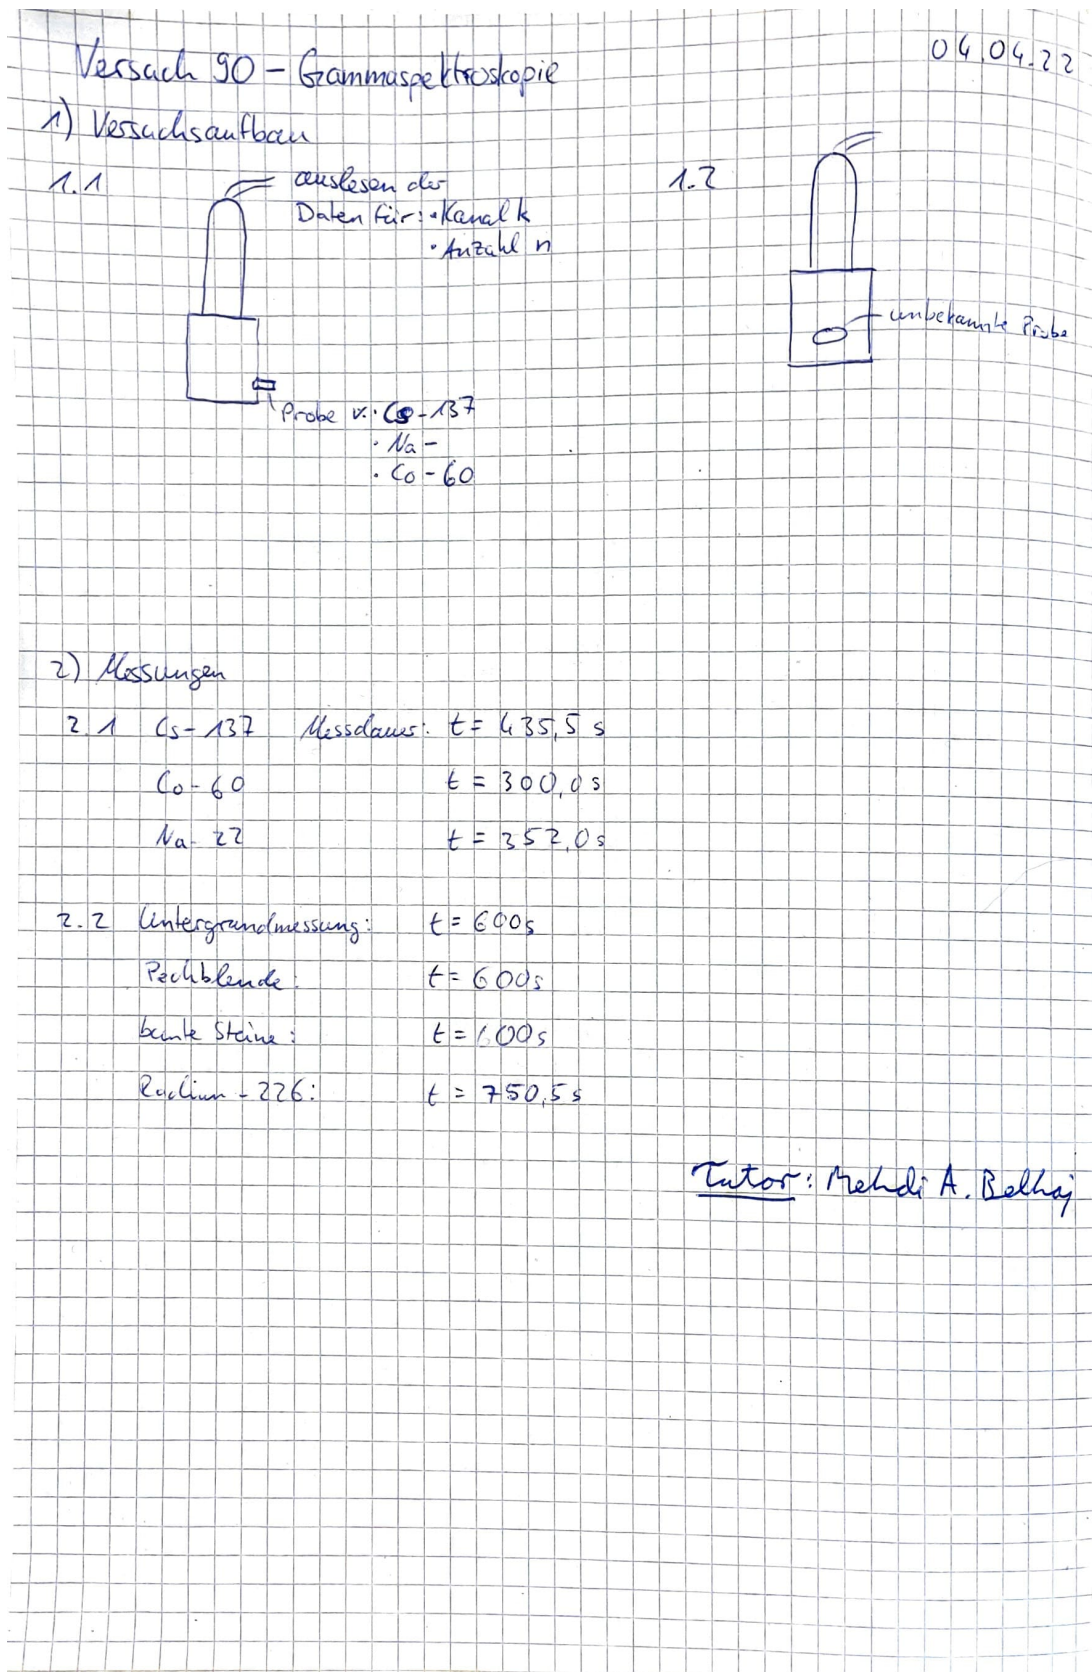 04.04.22
Versuch 90 - Gammaspektroskopie
1) Versuchsaufbau
1.1
auslesen der
Daten für: • Kanal k
• Anzahl n
Probe v.: • Cs-137
• Na-
• Co-60
1.2
unbekannte Probe
2) Messungen
2.1 Cs-137 Messdauer: t = 435,5 s
Co-60 t = 300,0 s
Na-22 t = 352,0 s
2.2 Untergrundmessung: t = 600s
Pechblende: t = 600s
bunte Steine: t = 600s
Radium-226: t = 750,5 s
Tutor: Mehdi A. Belhaj